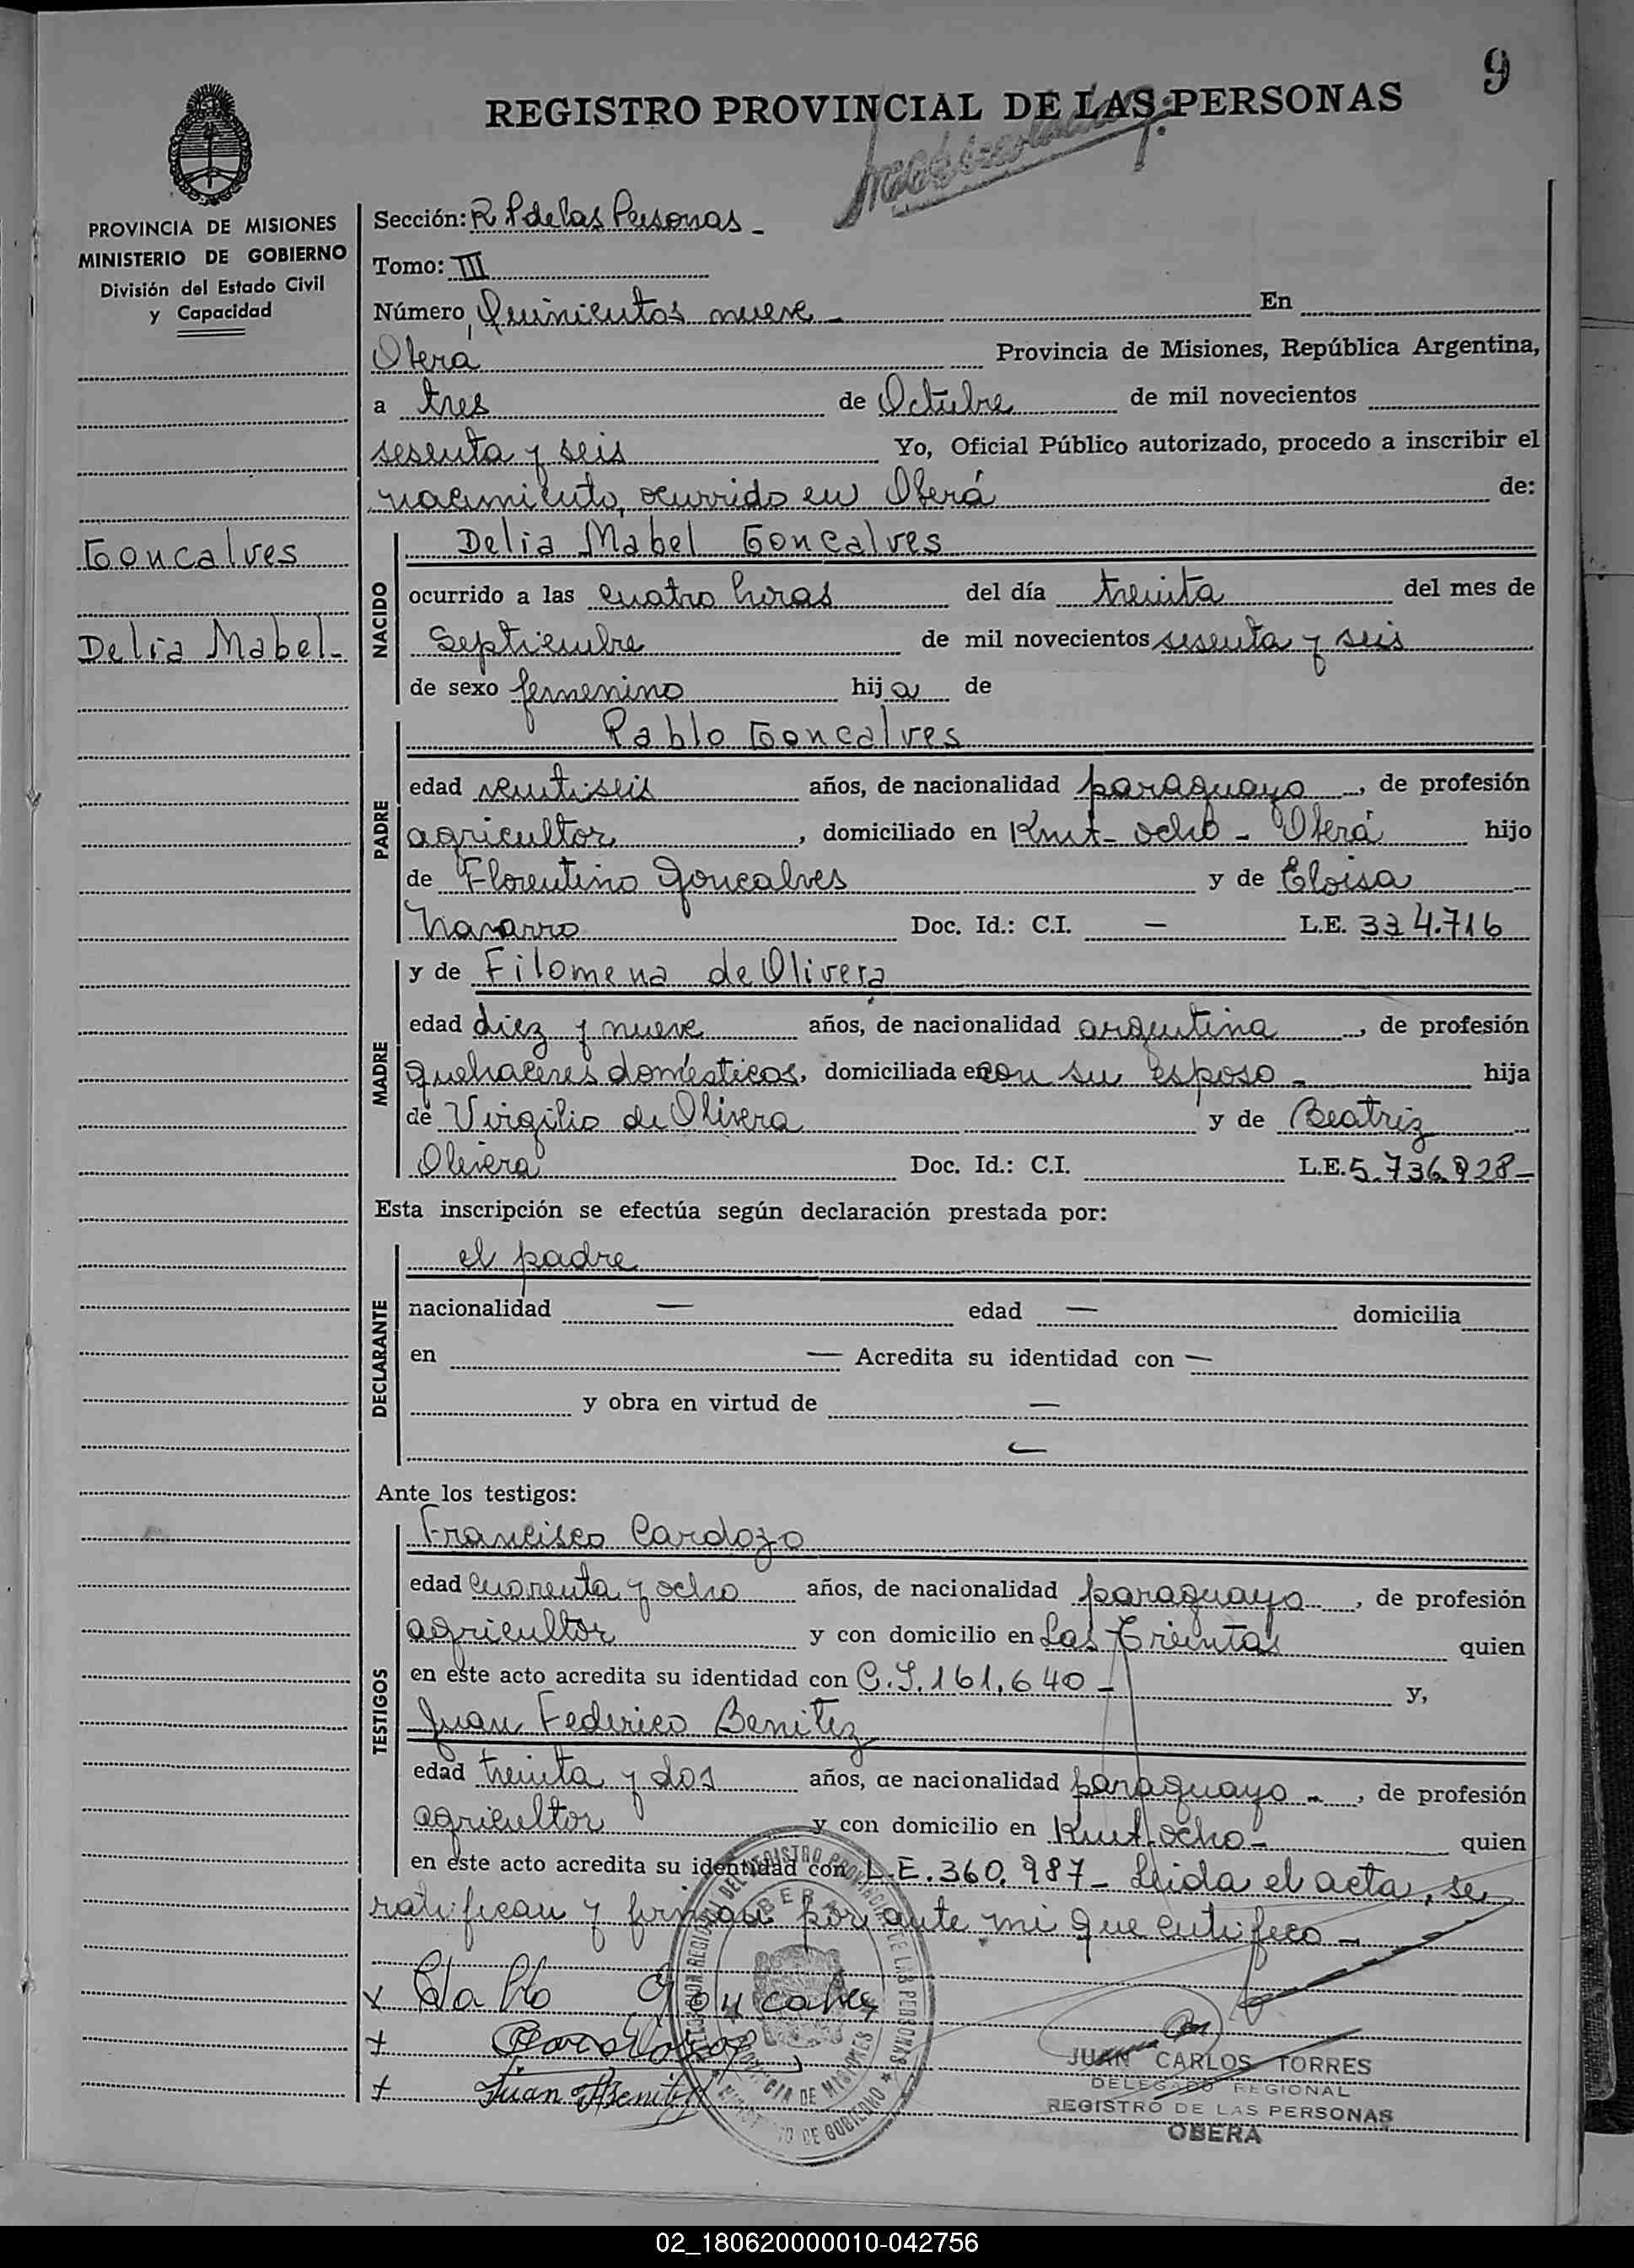 9
REGISTRO PROVINCIAL DE LAS PERSONAS
PROVINCIA DE MISIONES
MINISTERIO DE GOBIERNO
División del Estado Civil
y Capacidad
Goncalves
Delia Mabel-
Sección: R P de las Personas -
Tomo: III
Número Quinientos nueve - En
Oberá Provincia de Misiones, República Argentina,
a tres de Octubre de mil novecientos
sesenta y seis Yo, Oficial Público autorizado, procedo a inscribir el
nacimiento, ocurrido en Oberá de:
NACIDO
Delia Mabel Goncalves
ocurrido a las cuatro horas del día treinta del mes de
Septiembre de mil novecientos sesenta y seis
de sexo femenino hija de
PADRE
Pablo Goncalves
edad veintiseis años, de nacionalidad paraguayo, de profesión
agricultor, domiciliado en Kmt- ocho - Oberá hijo
de Florentino Goncalves y de Eloisa
Navarro Doc. Id.: C.I. — L.E. 334.716
MADRE
y de Filomena de Olivera
edad diez y nueve años, de nacionalidad argentina, de profesión
quehaceres domésticos, domiciliada en con su esposo - hija
de Virgilio de Olivera y de Beatriz
Olivera Doc. Id.: C.I. L.E. 5.736.928-
Esta inscripción se efectúa según declaración prestada por:
DECLARANTE
el padre
nacionalidad — edad — domicilia
en — Acredita su identidad con —
y obra en virtud de —
—
Ante los testigos:
TESTIGOS
Francisco Cardozo
edad cuarenta y ocho años, de nacionalidad paraguayo, de profesión
agricultor y con domicilio en Las Treintas quien
en este acto acredita su identidad con C.I. 161.640 - y,
Juan Federico Benitez
edad treinta y dos años, de nacionalidad paraguayo -, de profesión
agricultor y con domicilio en Kmt. ocho - quien
en este acto acredita su identidad con L.E. 360.987- Leida el acta, se
ratifican y firman por ante mi que certifico -
x Pablo Goncalves
+ Cardozo
+ Juan F Benitez
PROVINCIA DE MISIONES
JUAN CARLOS TORRES
DELEGADO REGIONAL
REGISTRO DE LAS PERSONAS
OBERA
02_180620000010-042756